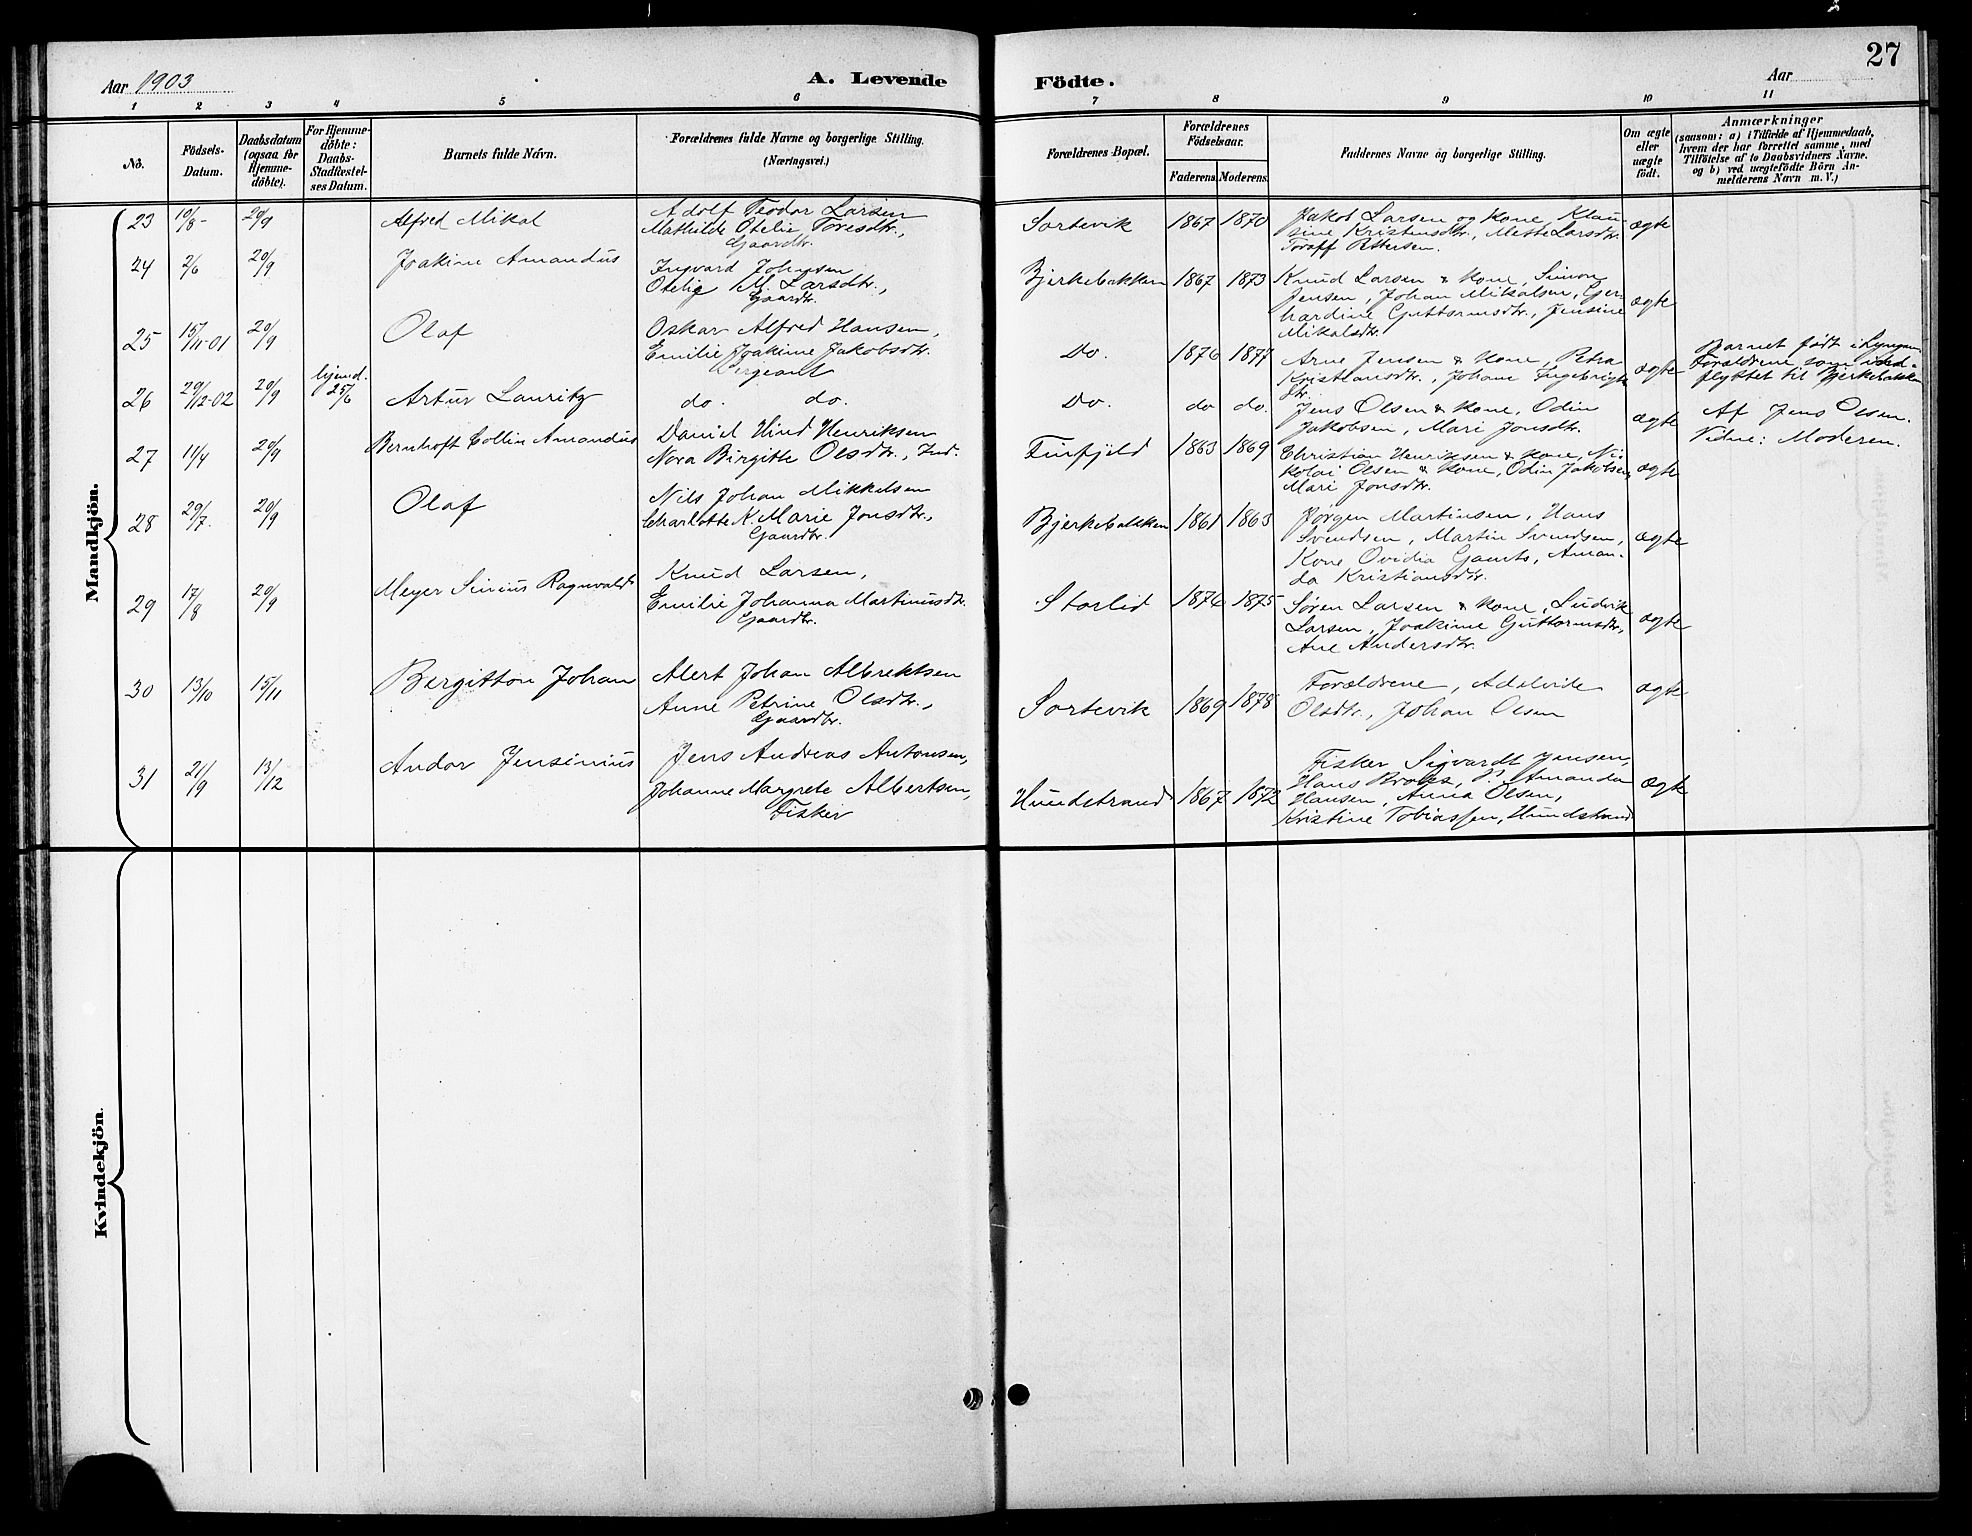 27
Aar 1903
A. Levende
Födte.
Aar
1 2 3 4 5 6 7 8 9 10 11
No.
Födsels-
Datum.
Daabsdatum
(ogsaa for
Hjemme-
döbte).
For Hjemme-
döbte:
Daabs-
Stadfæstel-
ses Datum.
Barnets fulde Navn.
Forældrenes fulde Navne og borgerlige Stilling.
(Næringsvei.)
Forældrenes Bopæl.
Forældrenes
Födselsaar.
Faderens. Moderens.
Faddernes Navne og borgerlige Stilling.
Om ægte
eller
uægte
födt.
Anmærkninger
(saasom: a) i Tilfælde af Hjemmedaab,
hvem der har forrettet samme, med
Tilföielse af to Daabsvidners Navne.
og b) ved uægtefödte Börn An-
melderens Navn m. V.)
Mandkjön.
23 10/8 - 20/9 Alfred Mikal
Adolf Teodor Larsen
Mathilde Otelie Toresdtr.,
Gaardbr.
Sortevik 1867 1870
Jakob Larsen og Kone, Klau-
sine Kristensdtr., Mette Larsdtr.
Toraff Pettersen.
ægte
24 2/6 20/9 Joakim Amandus
Ingvard Johnsen
Otelie M. Larsdtr.,
Gaardbr.
Bjerkebakken 1867 1873
Knud Larsen & Kone, Simon
Jensen, Johan Mikalsen, Ger-
hardine Guttormsdtr., Jensine
Mikalsdtr.
ægte
25 15/11-01 20/9 Olaf
Oskar Alfred Hansen,
Emilie Joakime Jakobsdtr.
Sergeant
Do. 1876 1877
Arne Jensen & Kone, Petra
Kristiansdtr., Johane Ingebrigts
dtr.
ægte
Barnet født i Lyngen
Forældrene som ind-
flyttet til Bjerkebakken
26 29/12-02 20/9 hjemd. 25/6 Artur Lauritz
do. do.
Do. do do.
Jens Olsen & Kone, Odin
Jakobsen, Mari Jonsdtr.
ægte
Af Jens Olsen.
Vidne: Moderen.
27 11/4 20/9 Bernhoft Collin Amandus
Daniel Hind Henriksen
Nora Birgitte Olsdtr., Ind.
Finfjeld 1863 1869
Christian Henriksen & Kone, Ni-
kolai Olsen & Kone, Odin Jakobsen,
Mari Jonsdtr.
ægte
28 29/7. 20/9 Olaf
Nils Johan Mikkelsen
Charlotte K. Marie Jonsdtr.,
Gaardbr.
Bjerkebakken 1861 1863
Jørgen Martinsen, Hans
Svendsen, Martin Svendsen,
Kone Ovidia Gamts, Aman-
da Kristiansdtr.
ægte
29 17/8 20/9 Meyer Sinius Ragnvald
Knud Larsen,
Emilie Johanna Martinusdtr.
Gaardbr.
Storlid 1874 1875
Søren Larsen & Kone, Ludvik
Larsen, Joakime Guttormsdtr.,
Ane Andersdtr.
ægte
30 13/10 15/11 Bergitton Johan
Alert Johan Albrektsen
Anne Petrine Olsdtr.,
Gaardbr.
Sortevik 1869 1878
Forældrene, Adelvide
Olsdtr., Johan Olsen
ægte
31 21/9 13/12 Andor Jensinius
Jens Andreas Antonsen,
Johanne Margrete Albertsen,
Fisker
Hundstrand 1867 1872
Fisker Sigvardt Jensen,
Hans P. Amanda
Hansen, Anna Olsen,
Kristine Tobiassen, Hundstrand
ægte
Kvindekjön.